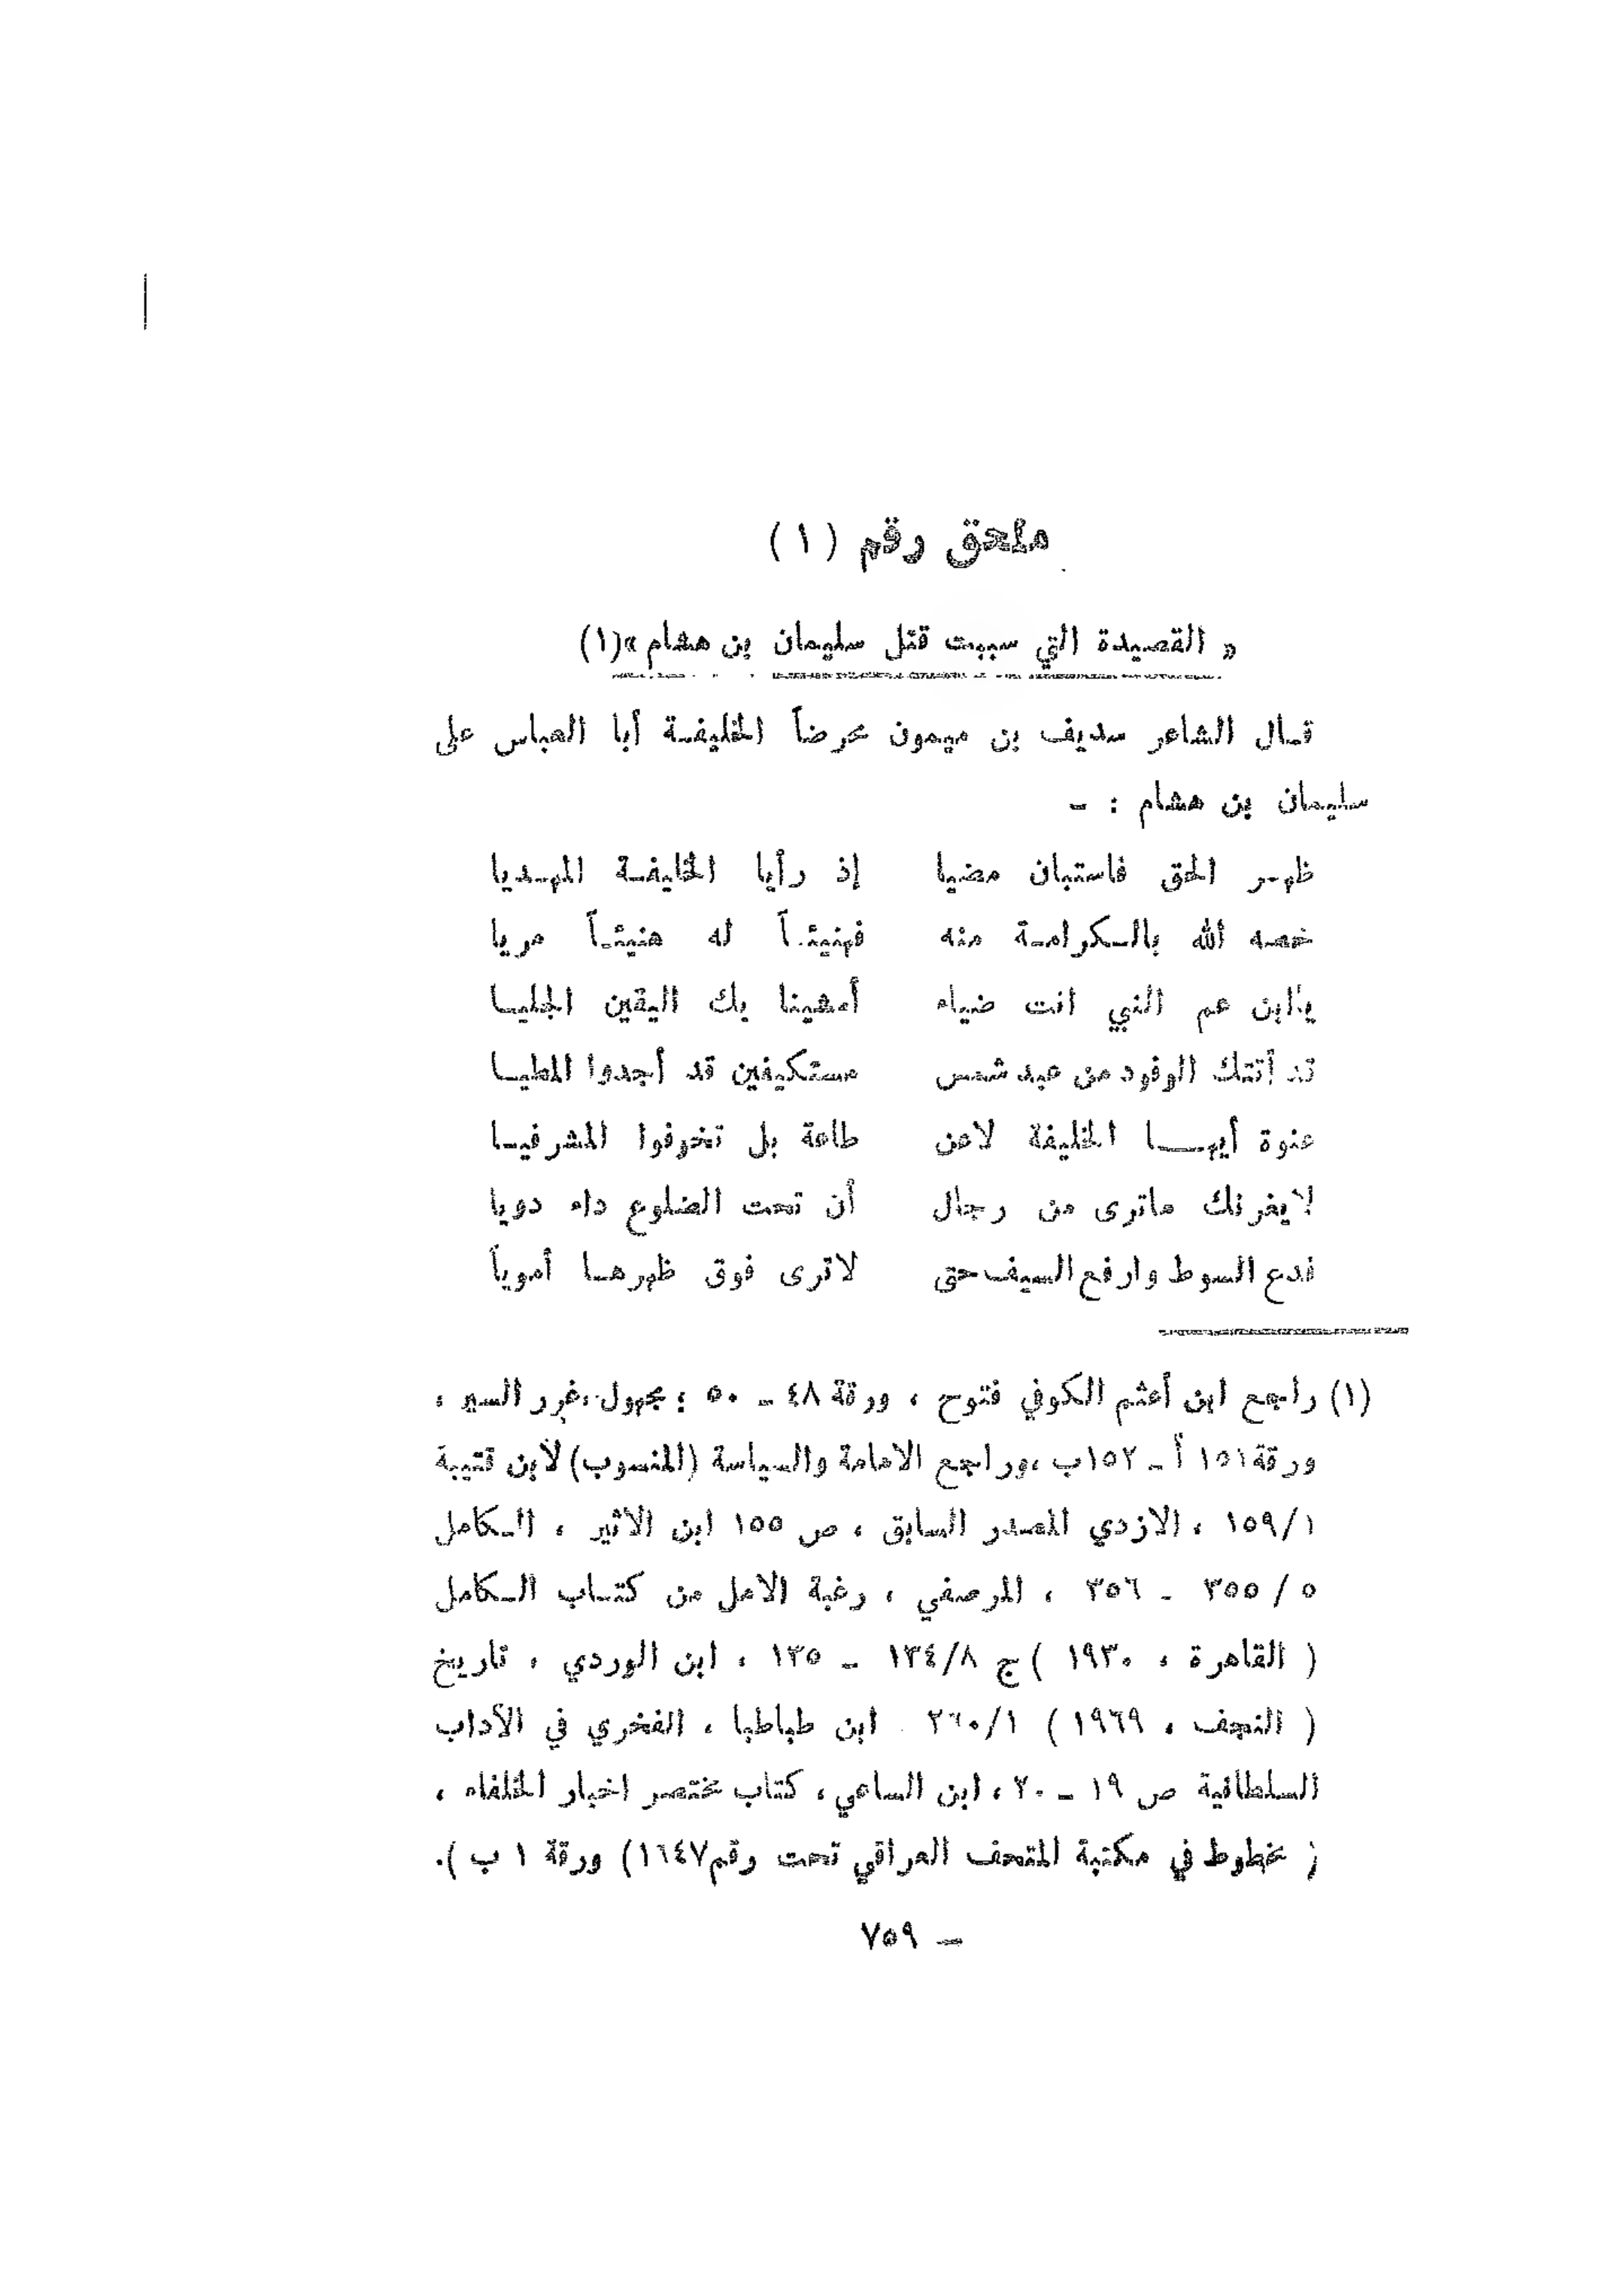 ملحق رقم (١)
« القصيدة التي سببت قتل سليمان بن هشام »(١)
قال الشاعر سديف بن ميمون محرضاً الخليفة أبا العباس على
سليمان بن هشام : -
ظهر الحق فاستبان مضيا إذ رأيا الخليفة المهديا
خصه الله بالكرامة منه فهنيئاً له هنيئاً مريا
يا ابن عم النبي انت ضياء أمشينا بك اليقين الجليا
قد أتتك الوفود من عبد شمس مستكيفين قد أجدوا المطيا
عنوة أيها الخليفة لاعن طاعة بل تخوفوا المشرفيا
لايغرنك ماترى من رجال أن تحت الضلوع داء دويا
فدع السوط وارفع السيف حتى لاترى فوق ظهرها أموياً
(١) راجع ابن أعثم الكوفي فتوح ، ورقة ٤٨ - ٥٠ ؛ مجهول ، غرر السير ،
ورقة ١٥١ أ - ١٥٢ب ، وراجع الامامة والسياسة (المنسوب) لأبن قتيبة
١/١٥٩ ، الازدي المصدر السابق ، ص ١٥٥ ابن الاثير ، الكامل
٥ / ٣٥٥ - ٣٥٦ ، المرصفي ، رغبة الامل من كتاب الكامل
( القاهرة ، ١٩٣٠ ) ج ٨/١٣٤ - ١٣٥ ، ابن الوردي ، تاريخ
( النجف ، ١٩٦٩ ) ١/٢٦٠ . ابن طباطبا ، الفخري في الآداب
السلطانية ص ١٩ - ٢٠ ، ابن الساعي ، كتاب مختصر اخبار الخلفاء ،
( مخطوط في مكتبة المتحف العراقي تحت رقم ١٦٤٧) ورقة ١ ب ).
- ٧٥٩